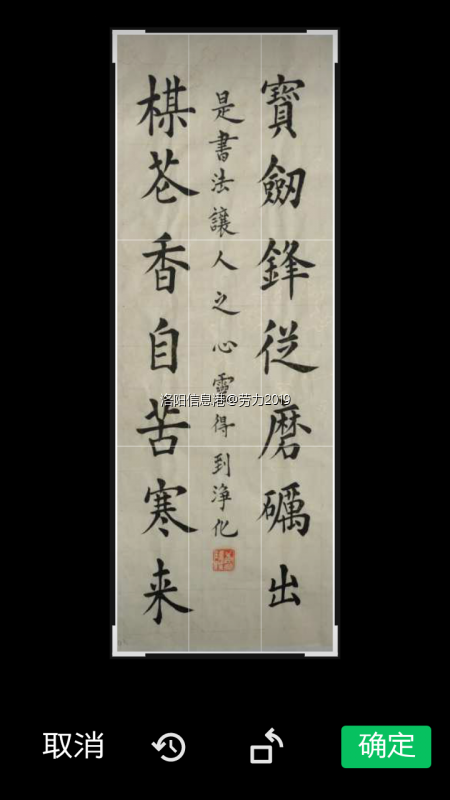 寶劒鋒従磨礪出
是書法讓人之心靈得到净化
楳苍香自苦寒来
洛阳信息港@劳力2019
取消
确定